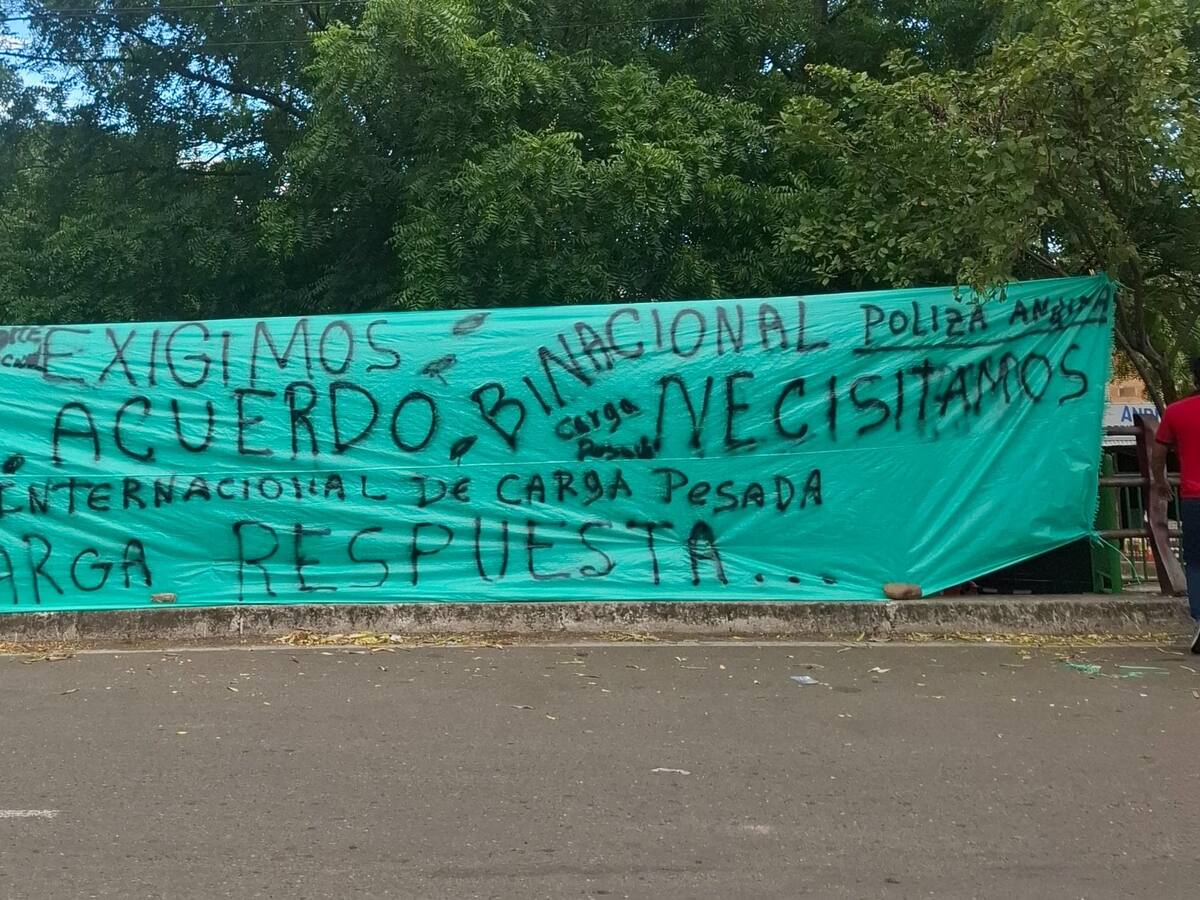 EXIGIMOS BINACIONAL POLIZA ANDINA
ACUERDO. Carga NECISITAMOS
INTERNACIONAL DE CARGA PESADA
ARGA RESPUESTA...
AND